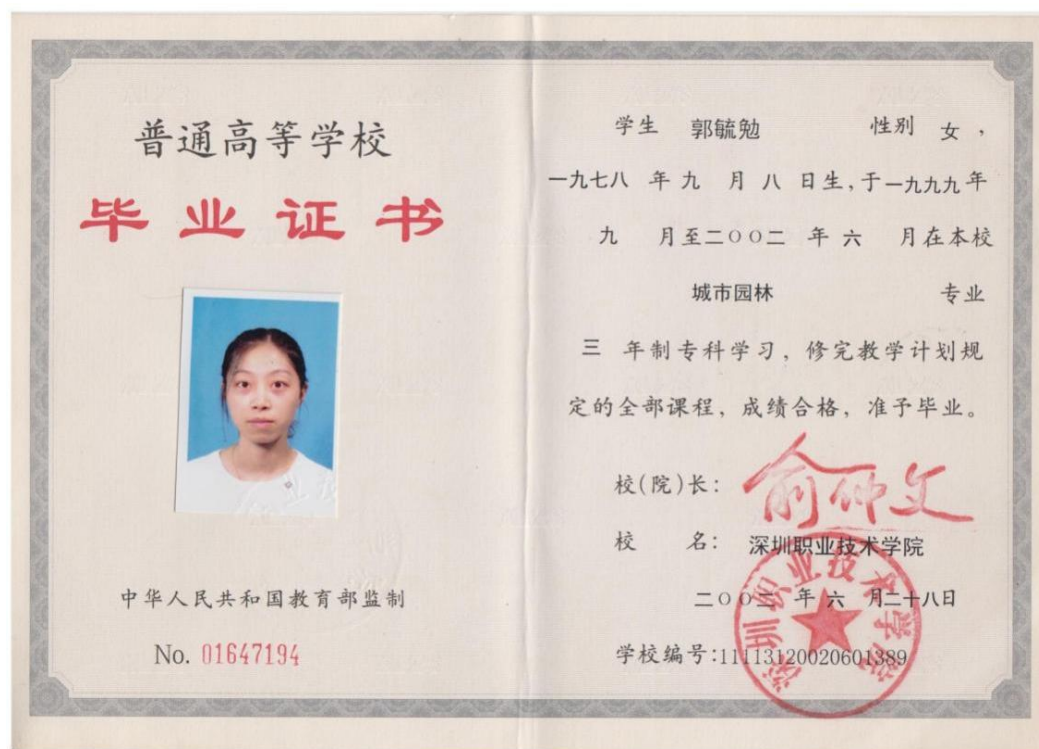 普通高等学校
毕业证书
中华人民共和国教育部监制
No. 01647194
学生 郭毓勉 性别 女，
一九七八 年 九 月 八 日生，于一九九九年
九 月至二〇〇二 年 六 月在本校
城市园林 专业
三 年制专科学习，修完教学计划规
定的全部课程，成绩合格，准予毕业。
校(院)长：俞仲文
校 名：深圳职业技术学院
二〇〇二 年 六 月二十八日
学校编号:11113120020601389
深圳职业技术学院